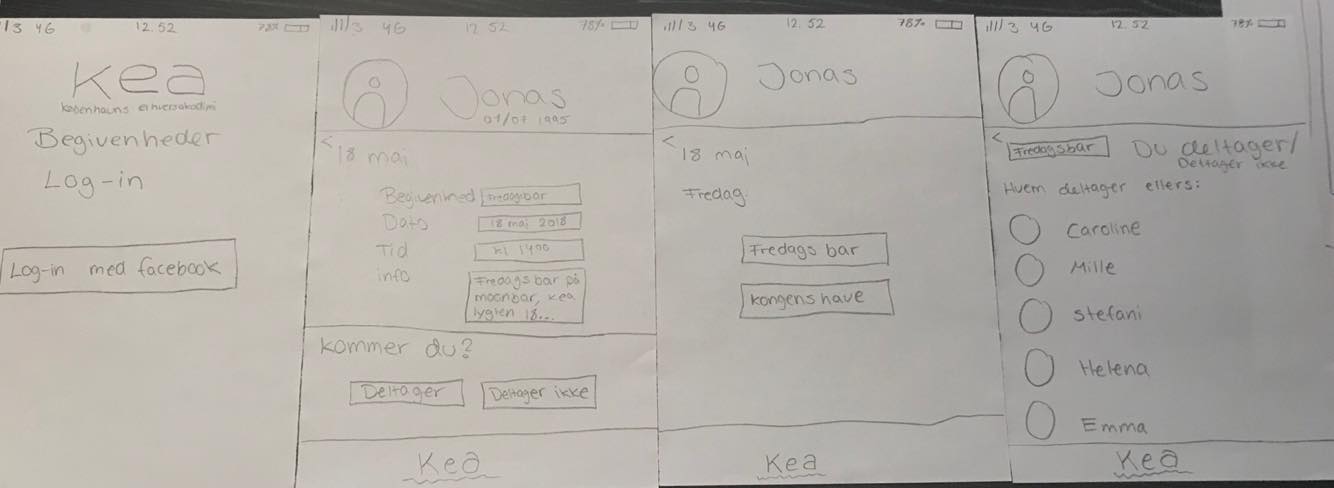 3 4G 12.52 78%
kea
københavns erhversakadimi
Begivenheder
Log-in
Log-in med facebook
3 4G 12 52 78%
Jonas
01/07 1995
<
18 maj
Begivenhed Fredagsbar
Dato 18 maj 2018
Tid kl 1400
info Fredags bar på
moonbar, kea
lygten 18...
Kommer du?
Deltager Deltager ikke
Kea
3 4G 12.52 78%
Jonas
<
18 maj
Fredag
Fredags bar
kongens have
Kea
3 4G 12 52 78%
Jonas
<
Fredagsbar Du deltager/
Deltager ikke
Hvem deltager ellers:
Caroline
Mille
Stefani
Helena
Emma
Kea